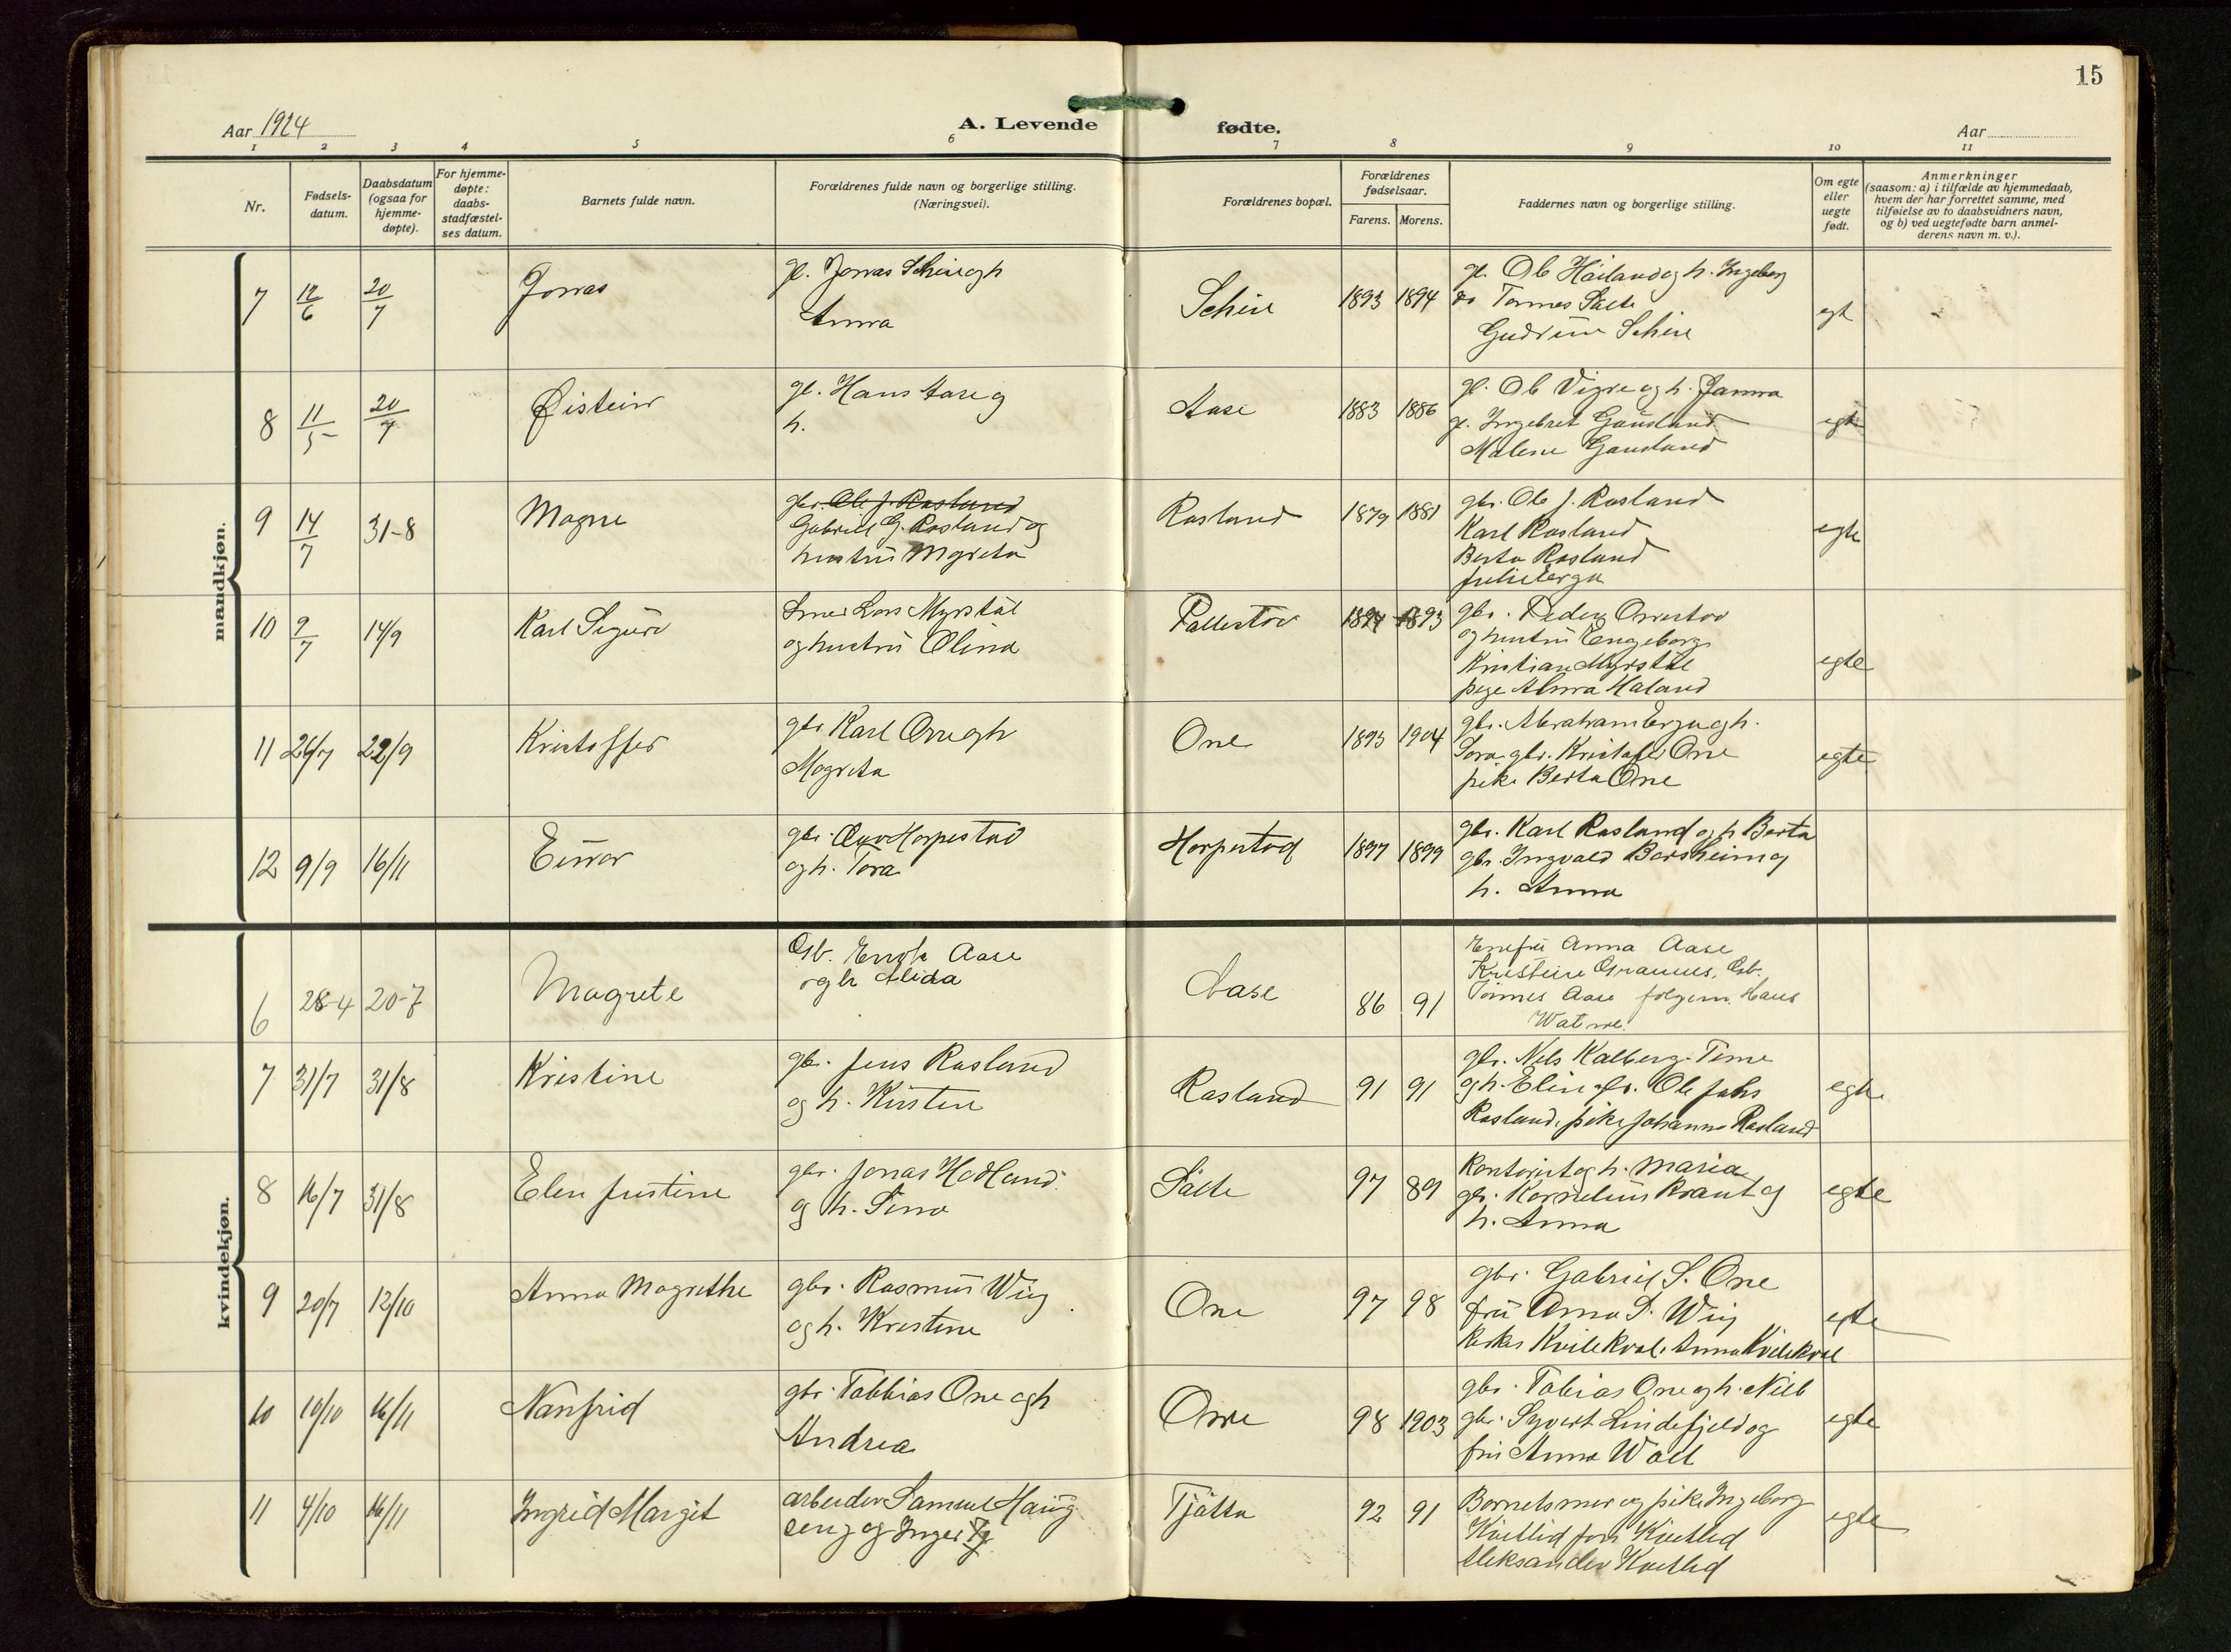 15
Aar 1924
A. Levende fødte.
Aar
1 2 3 4 5 6 7 8 9 10 11
Nr.
Fødsels-
datum.
Daabsdatum
(ogsaa for
hjemme-
døpte).
For hjemme-
døpte:
daabs-
stadfæstel-
ses datum.
Barnets fulde navn.
Forældrenes fulde navn og borgerlige stilling.
(Næringsvei).
Forældrenes bopæl.
Forældrenes
fødselsaar.
Farens. Morens.
Faddernes navn og borgerlige stilling.
Om egte
eller
uegte
født.
Anmerkninger
(saasom: a) i tilfælde av hjemmedaab,
hvem der har forrettet samme, med
tilføielse av to daabsvidners navn,
og b) ved uegtefødte barn anmel-
derens navn m. v.).
mandkjøn.
7 12/6 20/7 Jonas
Anna
1893 1894
Gudrun
8 11/5 20/7 Øistein
gl. Hans Aase og
h.
Aase 1883 1886
gl. Ole Vigre og h. Janna
gl. Ingebret Gausland
Malene Gausland
egte
9 14/7 31-8 Magne
gbr. Ole J. Rosland
Gabriel G. Rosland og
hustru Mgreta
Rosland 1879 1881
gbr. Ole J. Rosland
Karl Rosland
Berta Rosland
egte
10 9/7 14/9 Karl Sigurd
Lars Myrstøl
og hustru Olina
1894 1893
gbr. Peder
og hustru Engeborg
Kristian Myrstøl
pige Haland
egte
11 26/7 22/9 Kristoffer
gbr Karl Orre og h
Magreta
Orre 1893 1904
gbr. Abraham Erga og h.
gbr. Kristofer Orre
pike Berta Orre
egte
12 9/9 16/11 Einar
gbr. Horpestad
og h. Tora
Horpestad 1897 1899
gbr. Karl Rosland og h Berta
gbr. Ingvald Borsheim og
h. Anna
kvindekjøn.
6 28-4 20-7 Magrete
Gb. Aase
og h Alida
Aase 86 91
Enkefru Anna Aase
Kristine Gb.
Tønnes Aase Hans
Watne.
7 31/7 31/8 Kristine
gbr. Jens Rosland
og h. Kirsten
Rosland 91 91
gbr. Nels Kalberg Time
og h. Elin gbr. Ole Johs
Rosland, pike Johanna Rosland
egte
8 16/7 31/8 Elen Justine
gbr. Jonas Hodland
og h. Sina
Salte 97 89
Kontorist og h. Maria
gbr. Kornelius og
h. Anna
egte
9 20/7 12/10 Anna Magrethe
gbr. Rasmus Wiig
og h. Kristine
Orre 97 98
gbr. Gabriel S. Orre
fru Anna S. Wiig
Kvilekval, Anna Kvilekval
egte
10 10/10 16/11 Nanfrid
gbr. Tobbias Orre og h
Andrea
Orre 98 1903
gbr. Tobias Orre og h.
gbr. Syvert Lindefjeld og
fru Anna
egte
11 4/10 16/11 Ingrid Margit
arbeider Samuel Haug
seng og Inger
Tjøtta 92 91
Barnets mor og pike Ingeborg
Kvetlid
Aleksander Kvetlid
egte